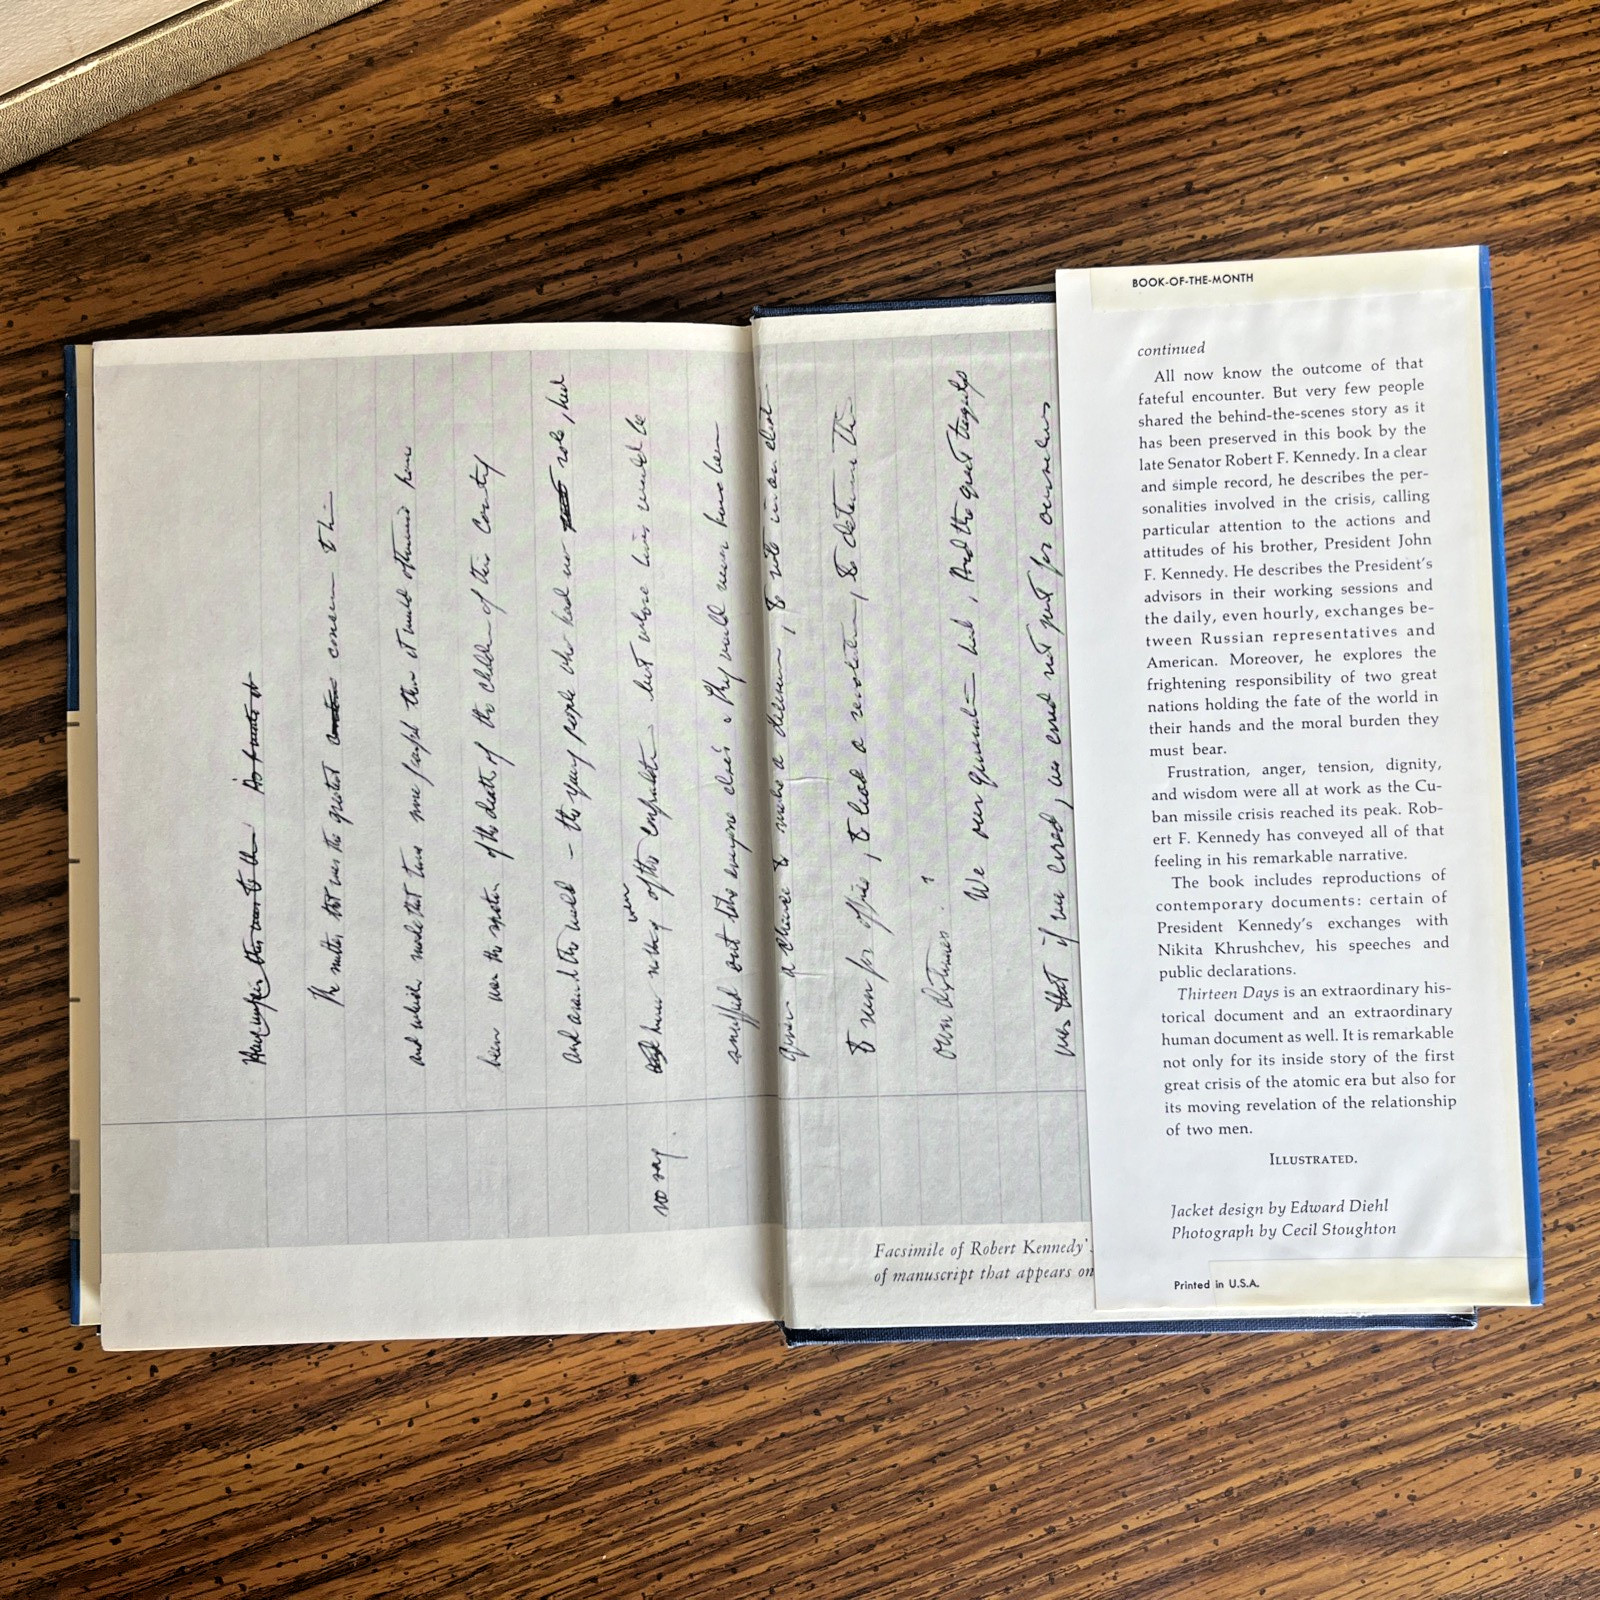 The matter that was the greatest concern to him
and which made that time more fearful than it would otherwise have
been was the specter of the death of the children of this country
and around the world — the young people who had no role, who had
no say
knew nothing even of the confrontation but whose lives would be
snuffed out like everyone else's. They would never have been
given a chance to make a decision, to vote in an election
to run for office, to lead a revolution, to determine their
own destinies. ?
We our generation had, And the great tragedy
was that if we erred, we erred not just for ourselves
Facsimile of Robert Kennedy'
of manuscript that appears on
BOOK-OF-THE-MONTH
continued
All now know the outcome of that
fateful encounter. But very few people
shared the behind-the-scenes story as it
has been preserved in this book by the
late Senator Robert F. Kennedy. In a clear
and simple record, he describes the per-
sonalities involved in the crisis, calling
particular attention to the actions and
attitudes of his brother, President John
F. Kennedy. He describes the President's
advisors in their working sessions and
the daily, even hourly, exchanges be-
tween Russian representatives and
American. Moreover, he explores the
frightening responsibility of two great
nations holding the fate of the world in
their hands and the moral burden they
must bear.
Frustration, anger, tension, dignity,
and wisdom were all at work as the Cu-
ban missile crisis reached its peak. Rob-
ert F. Kennedy has conveyed all of that
feeling in his remarkable narrative.
The book includes reproductions of
contemporary documents: certain of
President Kennedy's exchanges with
Nikita Khrushchev, his speeches and
public declarations.
Thirteen Days is an extraordinary his-
torical document and an extraordinary
human document as well. It is remarkable
not only for its inside story of the first
great crisis of the atomic era but also for
its moving revelation of the relationship
of two men.
ILLUSTRATED.
Jacket design by Edward Diehl
Photograph by Cecil Stoughton
Printed in U.S.A.